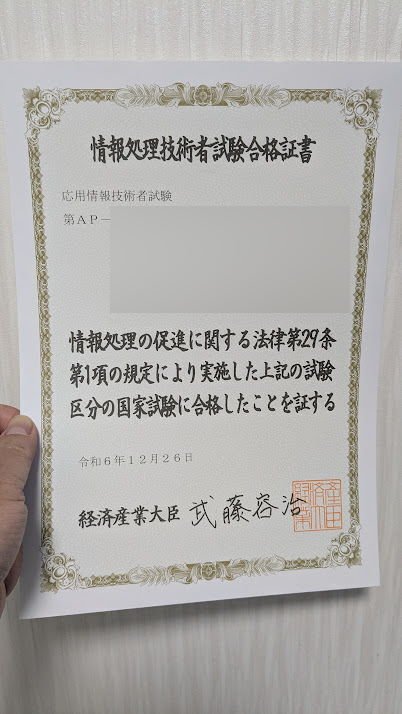 情報処理技術者試験合格証書
応用情報技術者試験
第ＡＰ－
情報処理の促進に関する法律第29条
第1項の規定により実施した上記の試験
区分の国家試験に合格したことを証する
令和６年１２月２６日
経済産業大臣 武藤容治